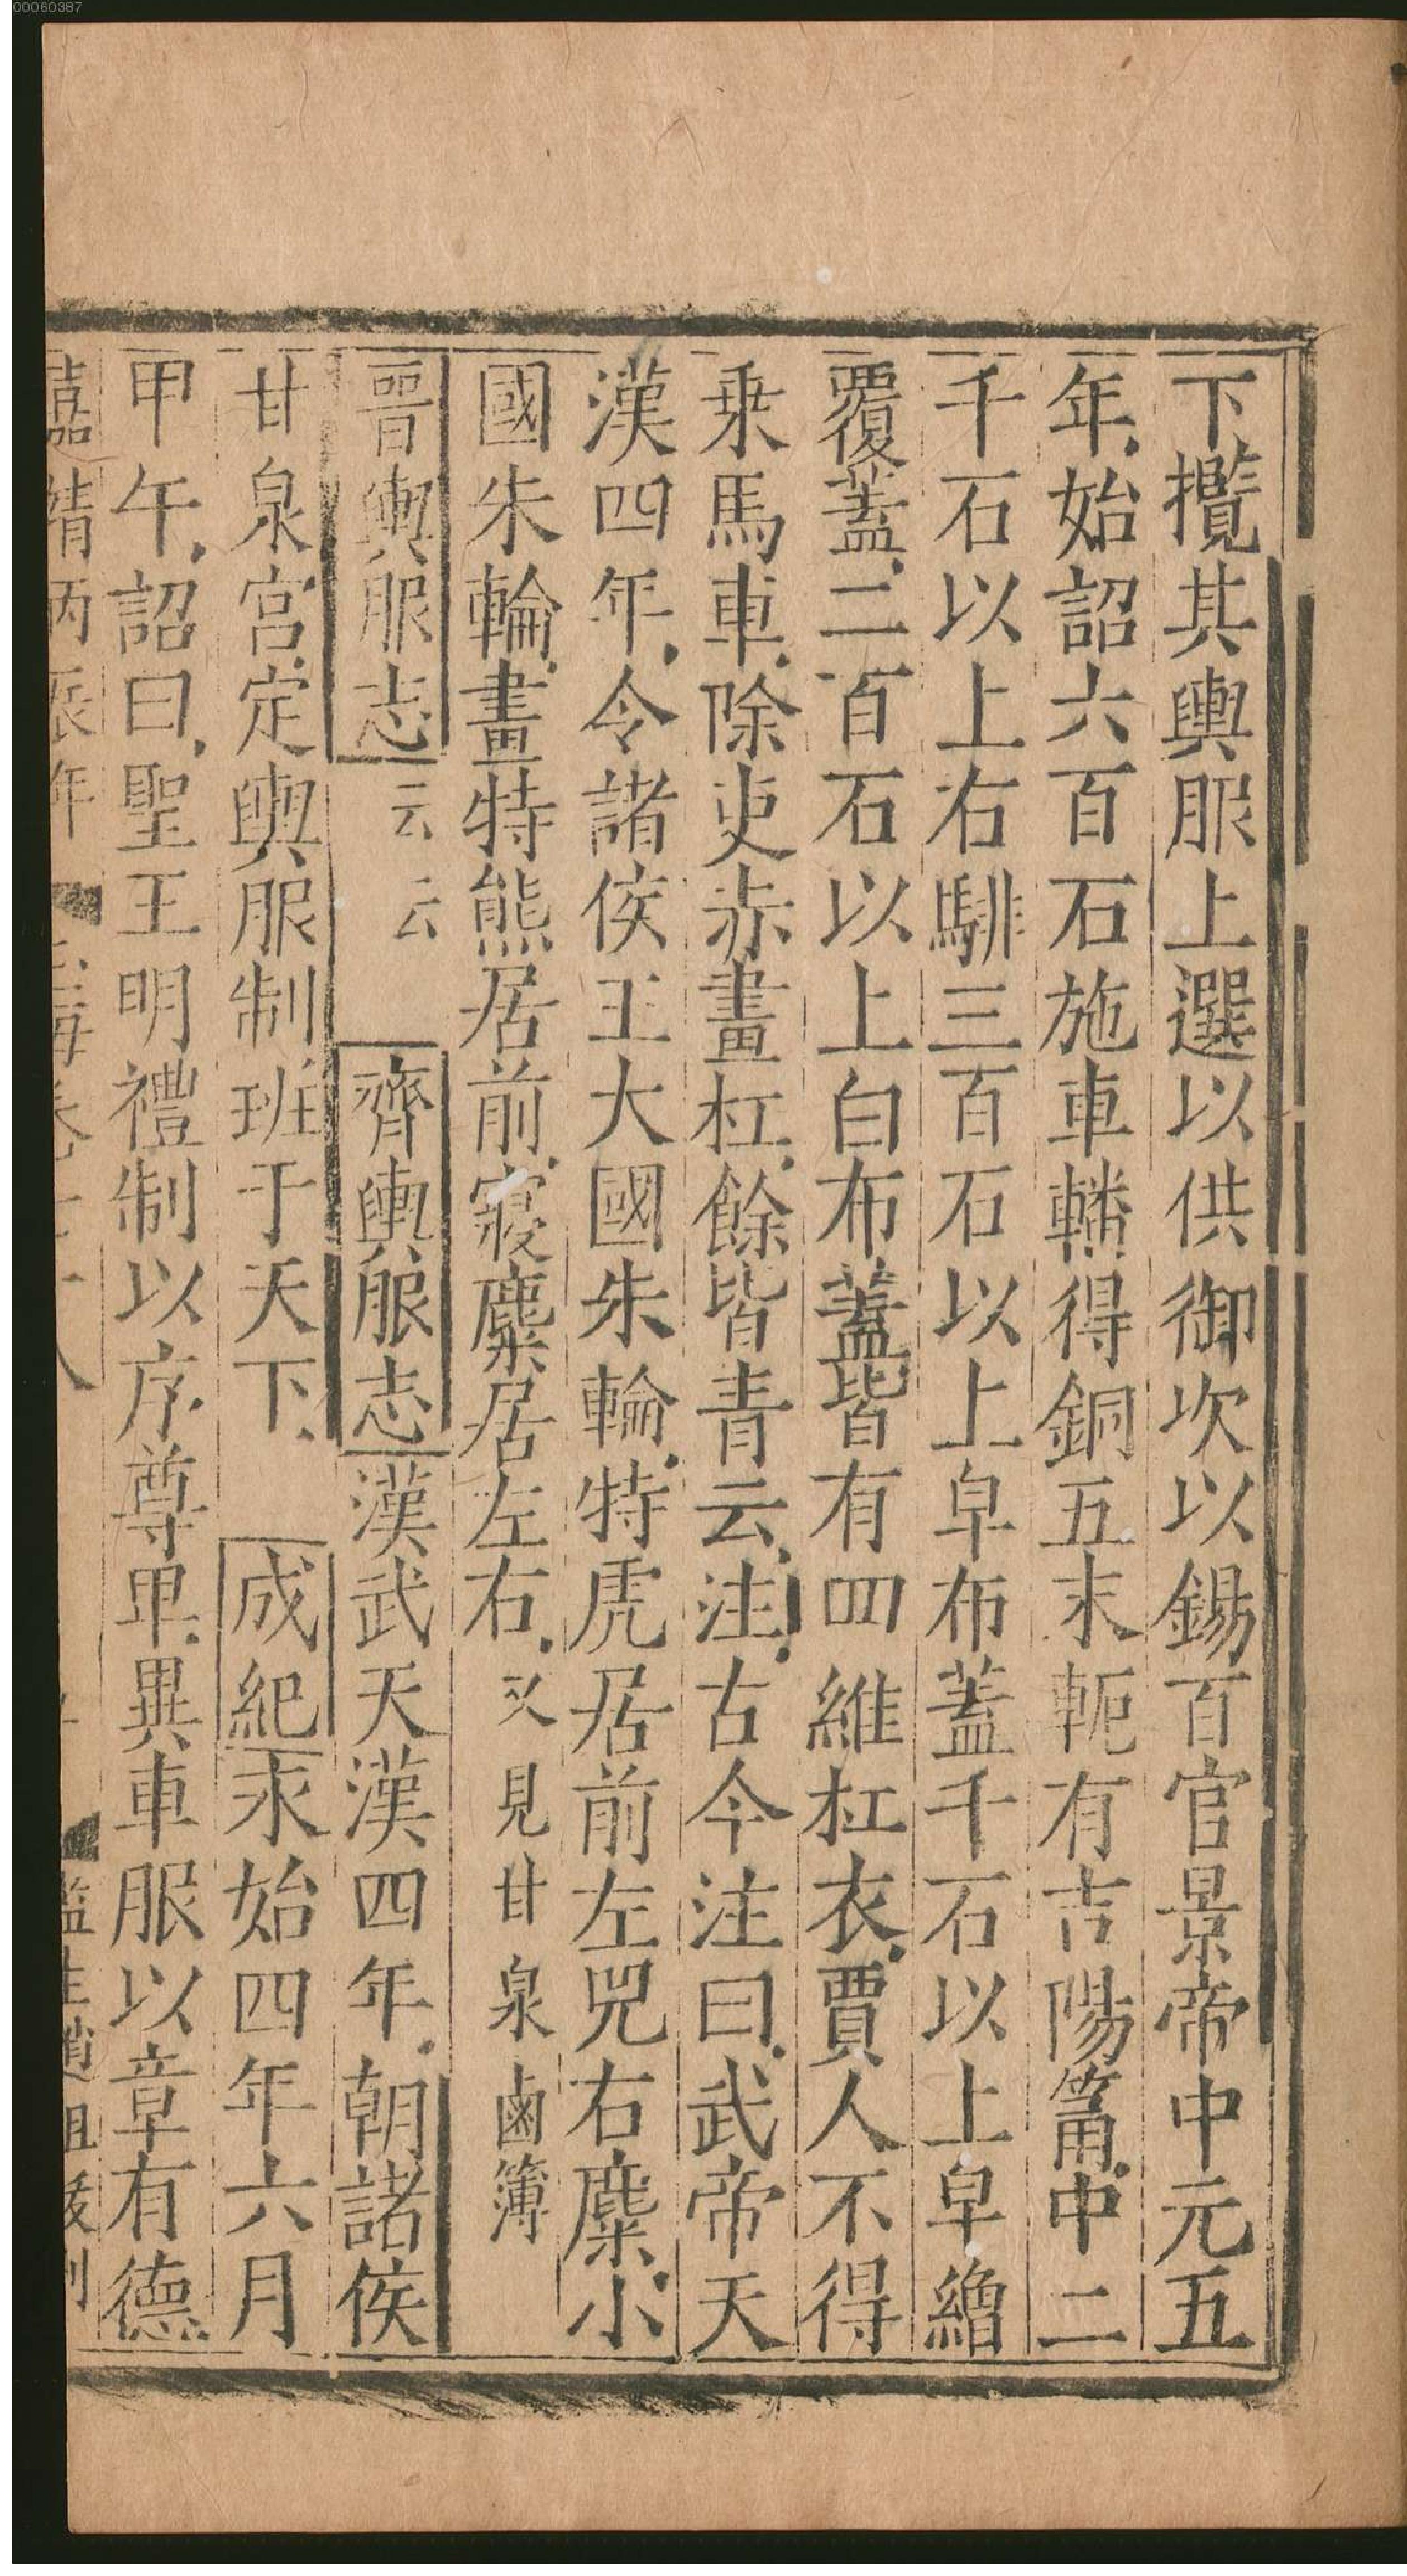 00060387
下攬其輿服上選以供御次以錫百官景帝中元五
年始詔六百石施車轓得銅五末軛有吉陽筩中二
千石以上右騑三百石以上皁布蓋千石以上皁繒
覆蓋二百石以上白布蓋皆有四維杠衣賈人不得
乗馬車除吏赤畫杠餘皆青云注古今注曰武帝天
漢四年令諸侯王大國朱輪特虎居前左兕右麋小
國朱輪畫特熊居前寢麋居左右又見甘泉鹵簿
晋輿服志云云齊輿服志漢武天漢四年朝諸侯
甘泉宮定輿服制班于天下成紀永始四年六月
甲午詔曰聖王明禮制以序尊卑異車服以章有德
嘉靖丙辰年